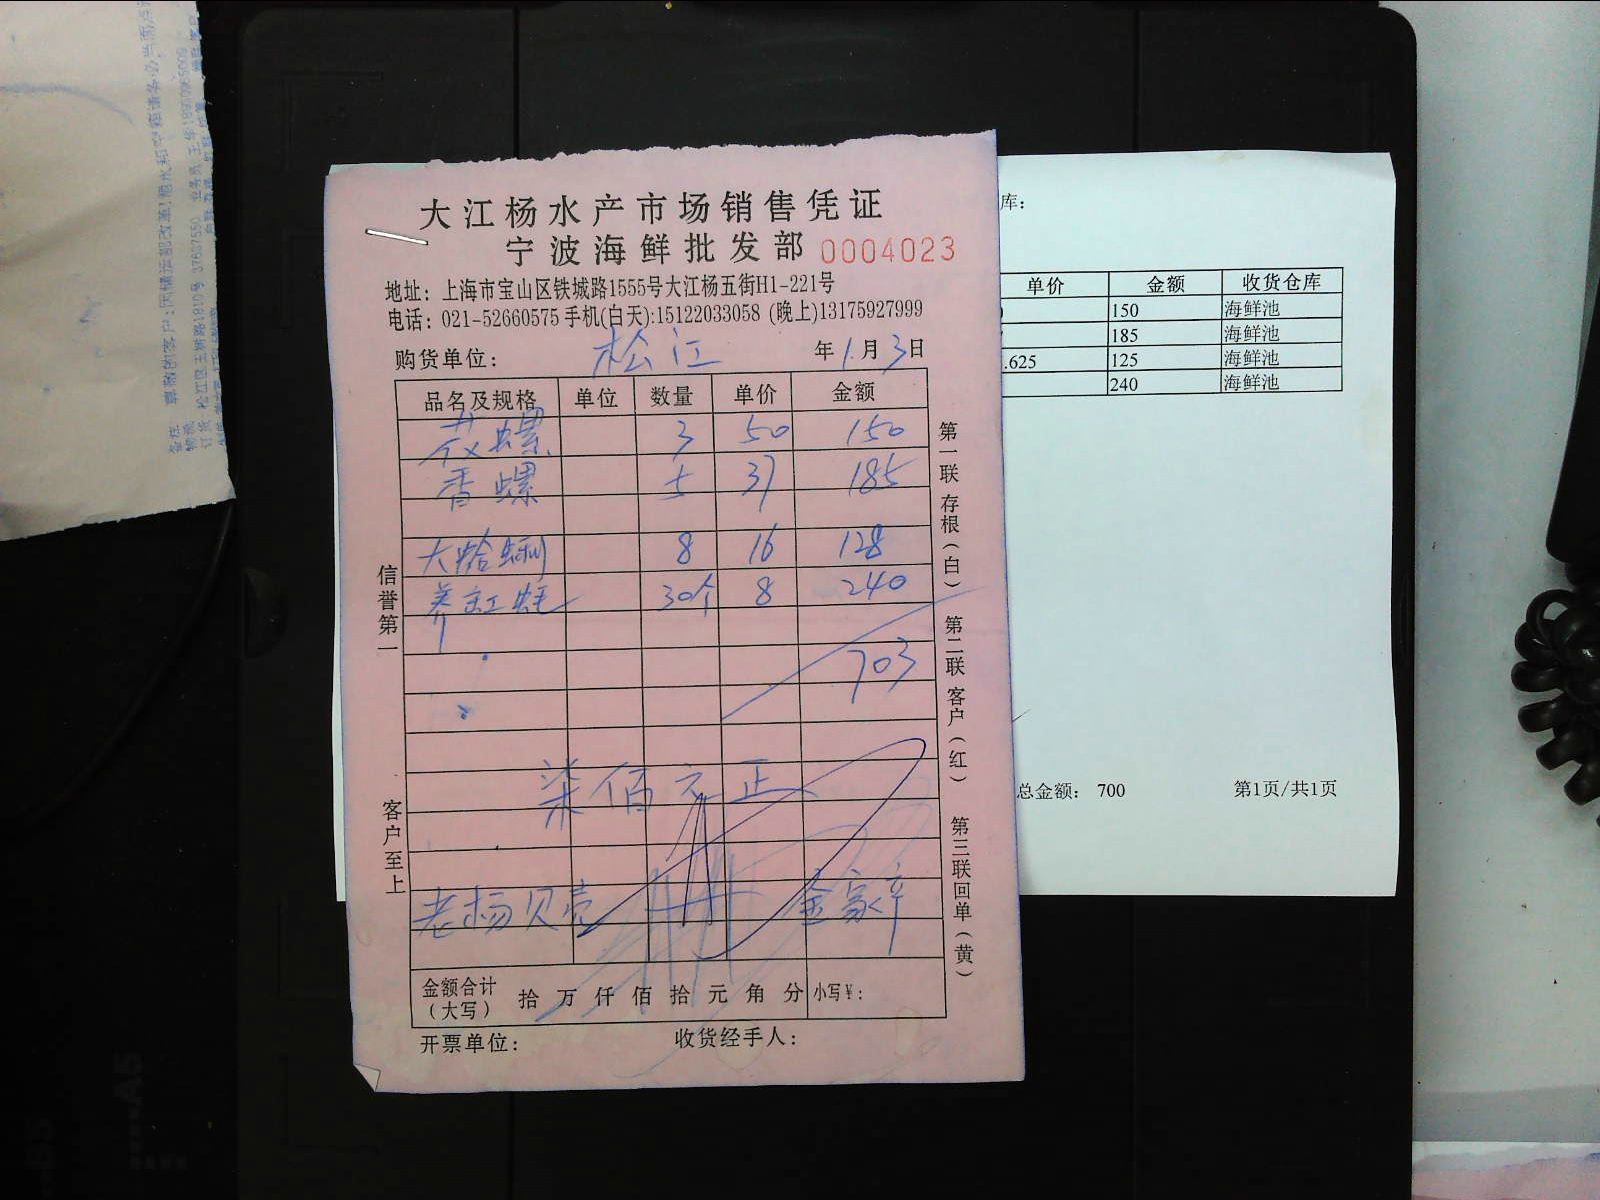 大江杨水产市场销售凭证
宁波海鲜批发部 0004023
地址：上海市宝山区铁城路1555号大江杨五街H1-221号
电话：021-52660575 手机(白天):15122033058 (晚上)13175927999
购货单位： 松江 年1月3日
品名及规格 单位 数量 单价 金额
花螺 3 50 150
香螺 5 37 185
大蛤蜊 8 16 128
养 30个 8 240
703
柒佰元正
老杨贝壳
金额合计（大写） 拾 万 仟 佰 拾 元 角 分 小写¥：
开票单位： 收货经手人：
信誉第一 客户至上
第一联 存根（白） 第二联 客户（红） 第三联 回单（黄）
库：
单价 金额 收货仓库
150 海鲜池
185 海鲜池
.625 125 海鲜池
240 海鲜池
总金额： 700 第1页/共1页